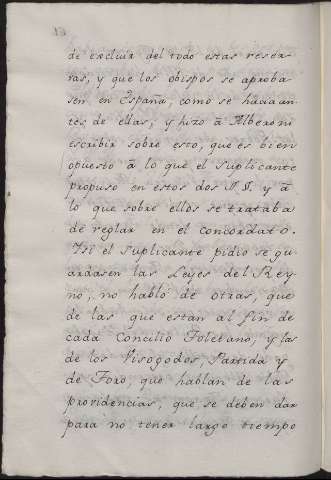 de excluir del todo estas reser-
vas, y que los obispos se aproba-
sen en España, como se hacia an-
tes de ellas, y hizo â Alberoni
escribir sobre esto, que es bien
opuesto â lo que el suplicante
propuso en estos dos P.P. y â
lo que sobre ellos se trataba
de reglar en el concordato.
Si el suplicante pidio se gu-
ardasen las Leyes del Rey-
no, no habló de otras, que
de las que estan al fin de
cada Concilio Toletano, y las
de los Visogodos, Partida y
de Foro, que hablan de las
providencias, que se deben dar
para no tener largo tiempo